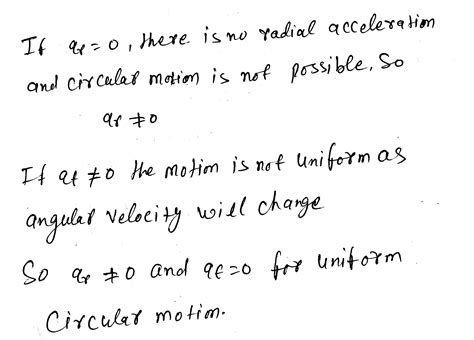 If ar = 0, there is no radial acceleration
and circular motion is not possible. So
ar ≠ 0
If at ≠ 0 the motion is not uniform as
angular velocity will change
So ar ≠ 0 and at = 0 for uniform
Circular motion.